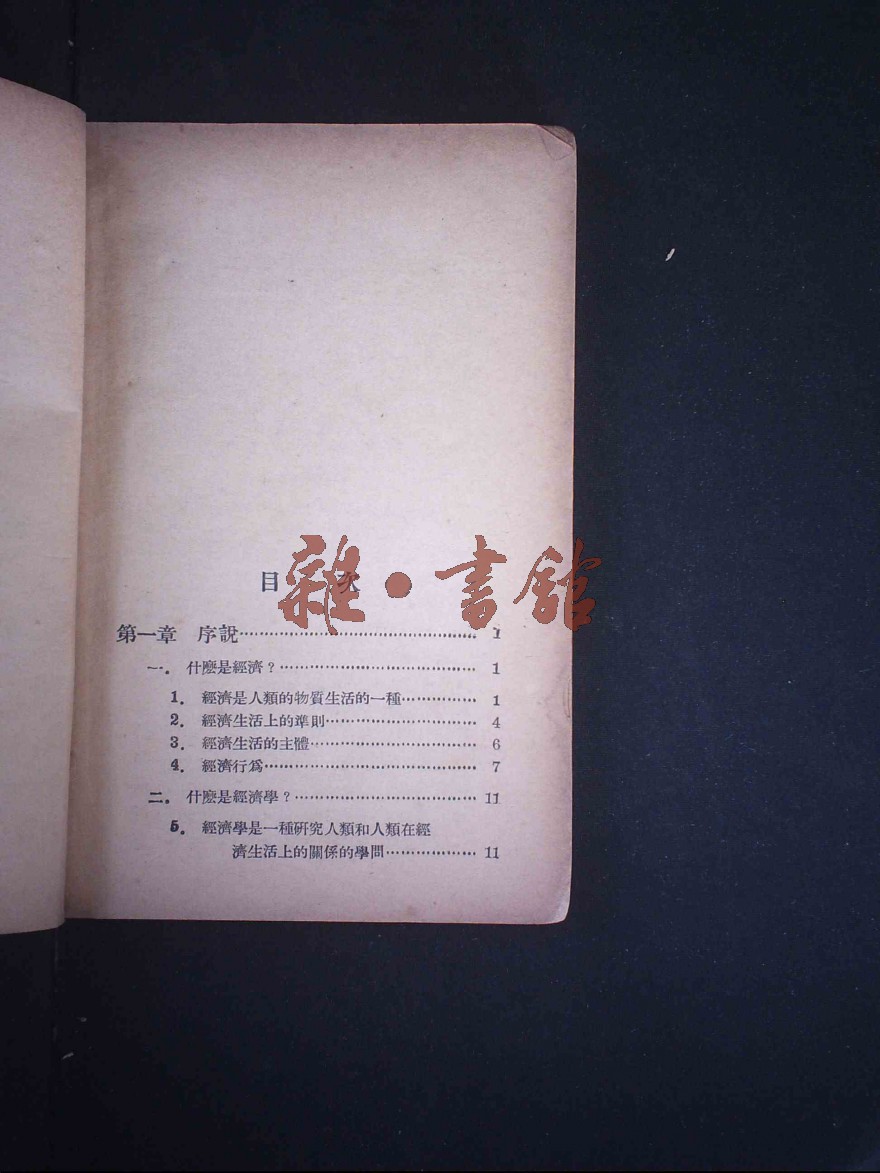 目次
雜·書舘
第一章 序說………………………………………… 1
一. 什麽是經濟？………………………………… 1
1. 經濟是人類的物質生活的一種…………… 1
2. 經濟生活上的準則………………………… 4
3. 經濟生活的主體…………………………… 6
4. 經濟行爲…………………………………… 7
二. 什麽是經濟學？……………………………… 11
5. 經濟學是一種研究人類和人類在經
濟生活上的關係的學問……………… 11